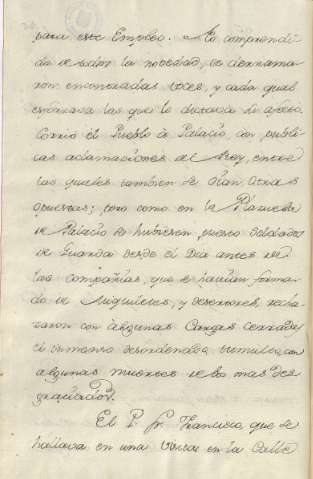 para este Empleo. No comprendi
da se
la novedad, se derrama
ron encontradas voces, y cada qual
esforzava las que le dictava su afecto.
Corrio el Pueblo à Palacio, con publi-
cas aclamaciones del Rey, entre
las quales tambien se oian otras
opuestas; pero como en la Plazuela
de Palacio se hubiesen puesto Soldados
de Guardia desde el Dia antes
las compañias, que se havian forma
do de Miqueletes, y desertores, recha
zaron con algunas Cargas cerradas
el inmenso desordenado tumulto, con
algunas muertes de los mas des
graciados.
El P. Fr. Francisco, que se
hallava en una
en la Calle